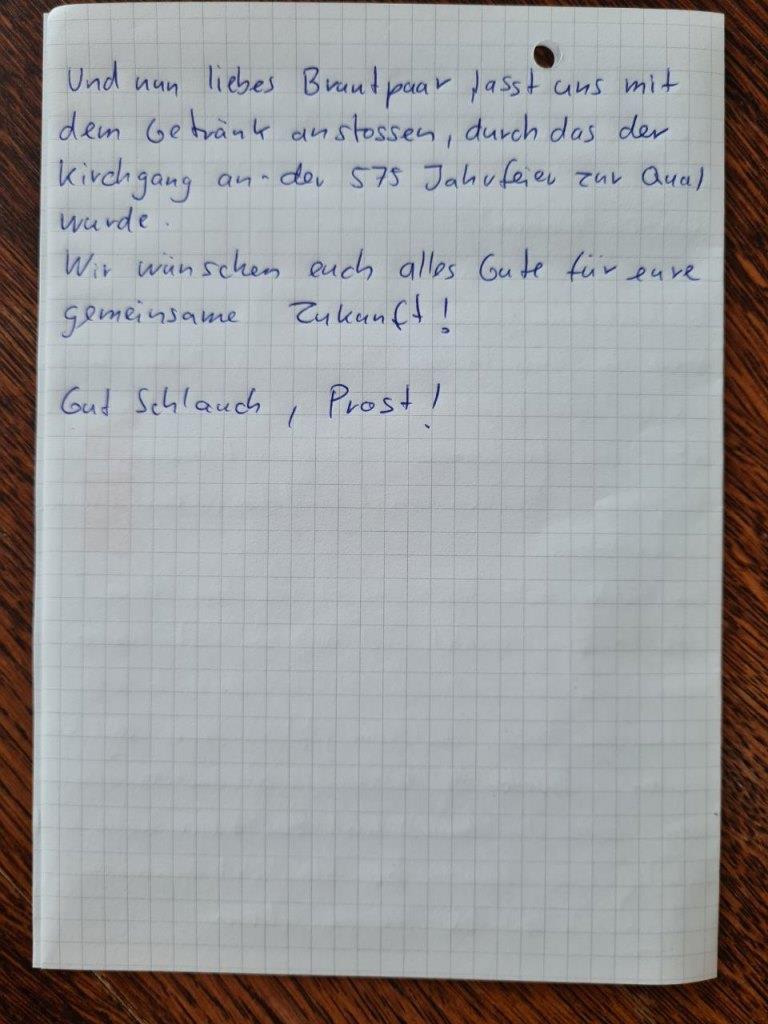 Und nun liebes Brautpaar lasst uns mit
dem Getränk anstossen, durch das der
Kirchgang an der 575 Jahrfeier zur Qual
wurde.
Wir wünschen euch alles Gute für eure
gemeinsame Zukunft!
Gut Schlauch, Prost!